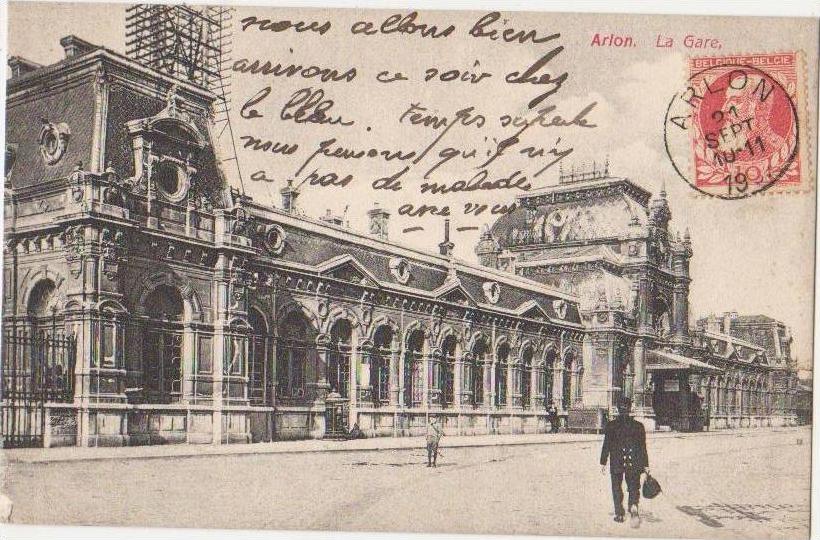 nous allons bien
arrivons ce soir chez
le bleu. temps superbe
nous pensons qu'il n'y
a pas de malade
avec vous
Arlon. La Gare,
BELGIQUE-BELGIE
ARLON
21
SEPT
10-11
19